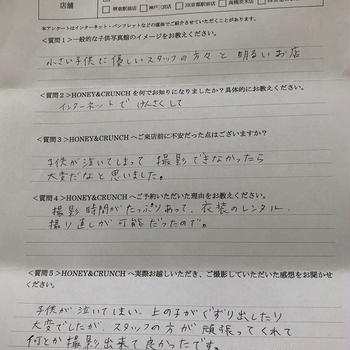 店舗
本アンケートはインターネット・パンフレットなどの媒体でご紹介させていただくことがあります。
<質問1>一般的な子供写真館のイメージをお教えください。
小さい子供に優しいスタッフの方々と明るいお店
<質問2>HONEY&CRUNCHを何でお知りになりましたか?具体的にお教えください。
インターネットでけんさくして
<質問3>HONEY&CRUNCHへご来店前に不安だった点はございますか?
子供が泣いてしまって 撮影できなかったら
大変だなと思いました。
<質問4>HONEY&CRUNCHへご予約いただいた理由をお教えください。
撮影時間がたっぷりあって、衣装のレンタル、
撮り直しが可能だったので。
<質問5>HONEY&CRUNCHへ実際お越しいただき、ご撮影していただいた感想をお聞かせ
ください。
子供が泣いてしまい、上の子がぐずり出したり
大変でしたが、スタッフの方が頑張ってくれて
何とか撮影出来て良かったです。